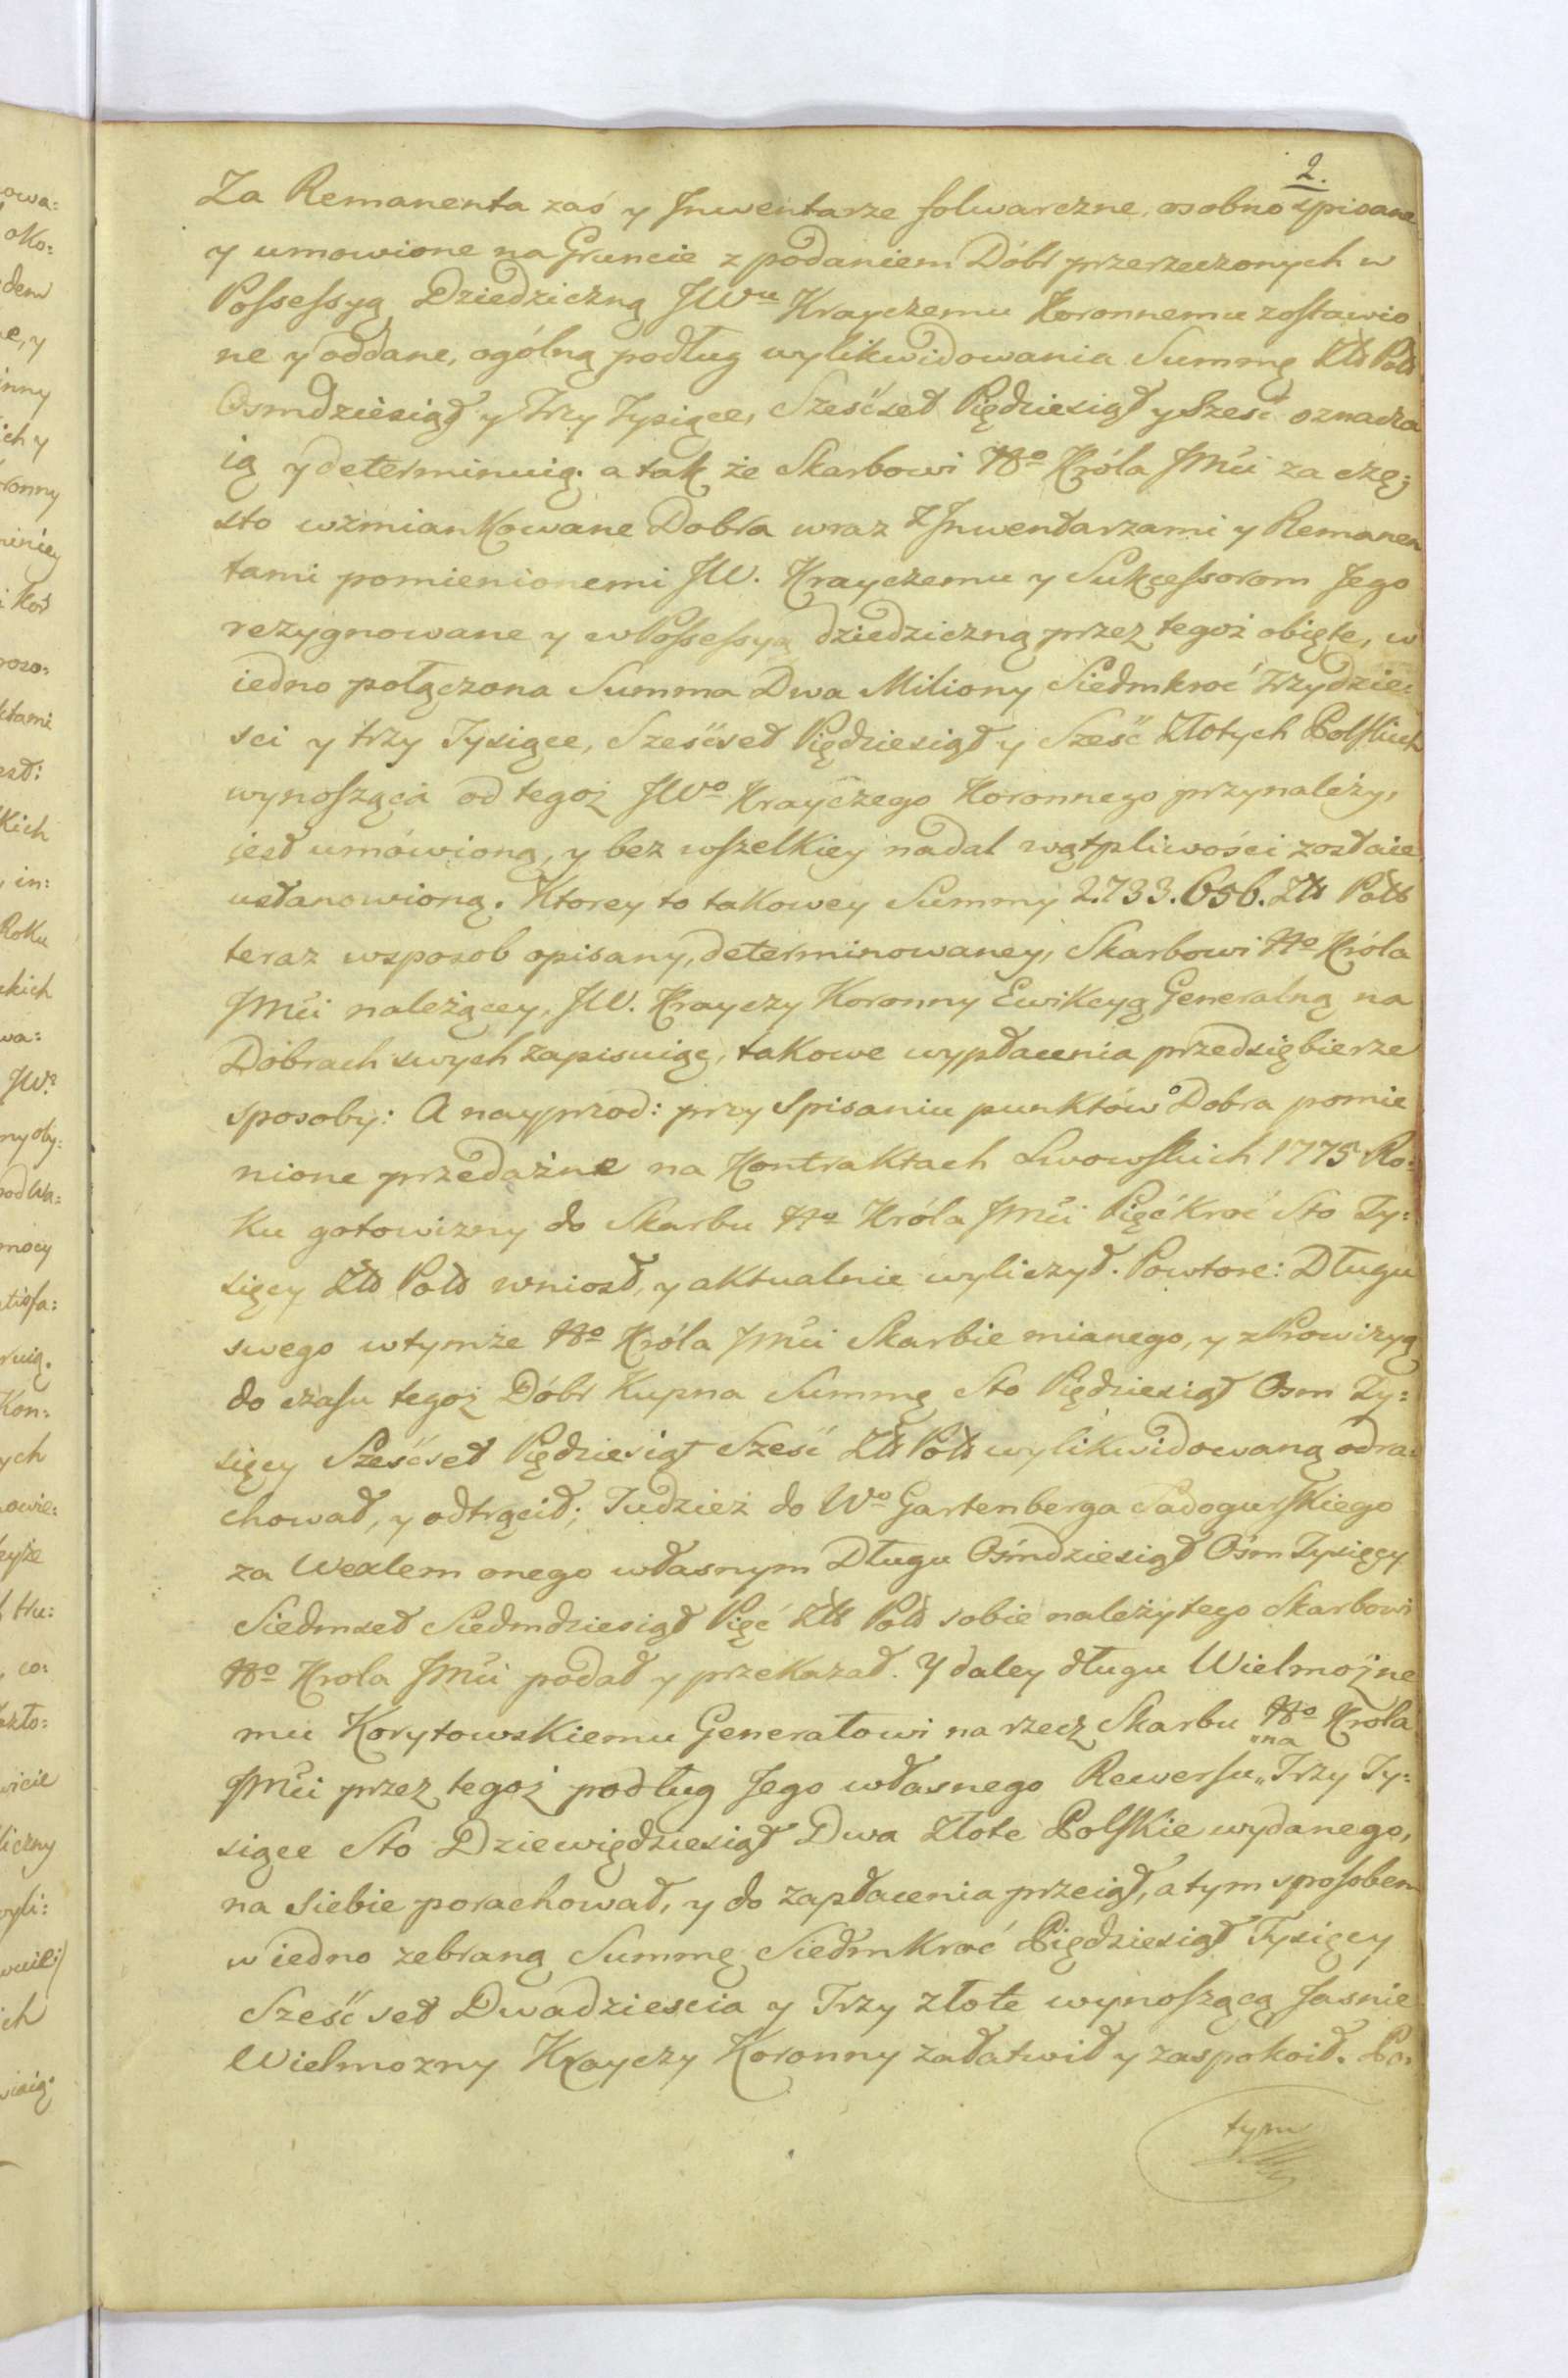 2.
Za Remanenta zaś y Jnwentarze folwarczne, osobno spisane
y umowione na Gruncie z podaniem Dóbr przerzeczonych w
Possessyą Dziedziczną JWu Krayczemu Koronnemu zostawio
ne y oddane, ogólną podług wylikwidowania Summę Złł Poll
Osmdziesiąt y Trzy Tysiące, Sześćset Piędziesiąt y Sześć oznacza
ią y determinuią. a tak że Skarbowi Nº Króla JMci za czę:
sto wzmiankowane Dobra wraz z Jnwentarzami y Remanen
tami pomienionemi JW. Krayczemu y Sukcessorom Jego
rezygnowane y w Possessyą dziedziczną przez tegoż obięte, w
iedno połączona Summa Dwa Miliony Siedmkroć Trzydzie:
sci y trzy Tysiące, Sześćset Piędziesiąt y Sześć Złotych Polskich
wynosząca od tegoż JWº Krayczego Koronnego przynależy,
jest umówioną, y bez wszelkiey nadal wątpliwości zostaie
ustanowioną. Ktorey to takowey Summy 2.733.656. Złł Poll
teraz wsposob opisany, determinowaney, Skarbowi Nº Króla
JMci należącey, JW. Krayczy Koronny Ewikcyą Generalną na
Dobrach swych zapisuiąc, takowe wypłacenia przedsiębierze
sposoby: A nayprzod: przy Spisaniu punktów o Dobra pomie
nione przedażne na Kontraktach Lwowskich 1775 Ro:
ku gotowizny do Skarbu Nº Króla JMci Pięćkroć Sto Ty:
sięcy Złł Poll wniosł, y aktualnie wyliczył. Powtore: Długu
swego wtymże Nº Króla JMci Skarbie mianego, y z Prowizyą
do czasu tegoż Dóbr Kupna Summę Sto Piędziesiąt Osm Ty:
sięcy Sześćset Piędziesiąt Sześć Złł Poll wylikwidowaną odra:
chował, y odtrącił; Tudzież do Wº Gartenberga Sadogurskiego
za Wexlem onego własnym Długu Ośmdziesiąt Ośm Tysięcy
Siedmset Siedmdziesiąt Pięć Złł Poll sobie należytego Skarbowi
Nº Krola JMci podał y przekazał. Y daley długu Wielmożne
mu Korytowskiemu Generałowi na rzecz Skarbu Nº Krola
JMci przez tegoż podług Jego własnego Rewersu „na Trzy Ty:
siące Sto Dziewiędziesiąt Dwa Złote Polskie wydanego,
na siebie porachował, y do zapłacenia przeiął, a tym sposobem
w iedno zebraną Summę Siedmkroć Piędziesiąt Tysięcy
Sześćset Dwadziescia y Trzy złote wynoszącą Jasnie
Wielmozny Krayczy Koronny załatwił y zaspokoił. Po:
tym